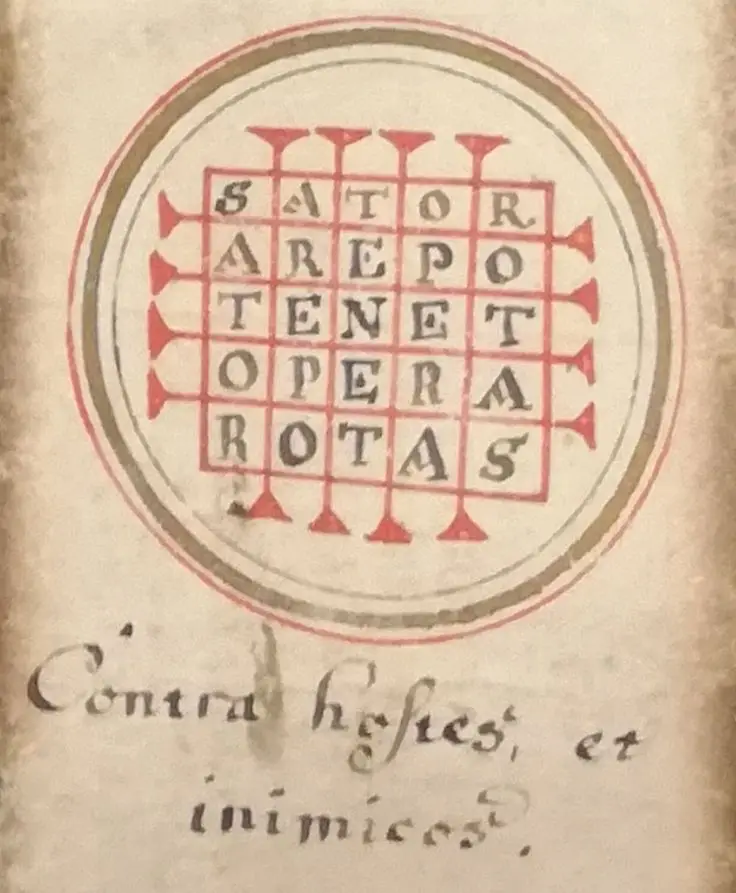 S A T O R
A R E P O
T E N E T
O P E R A
R O T A S
Contra hostes, et
inimicos.